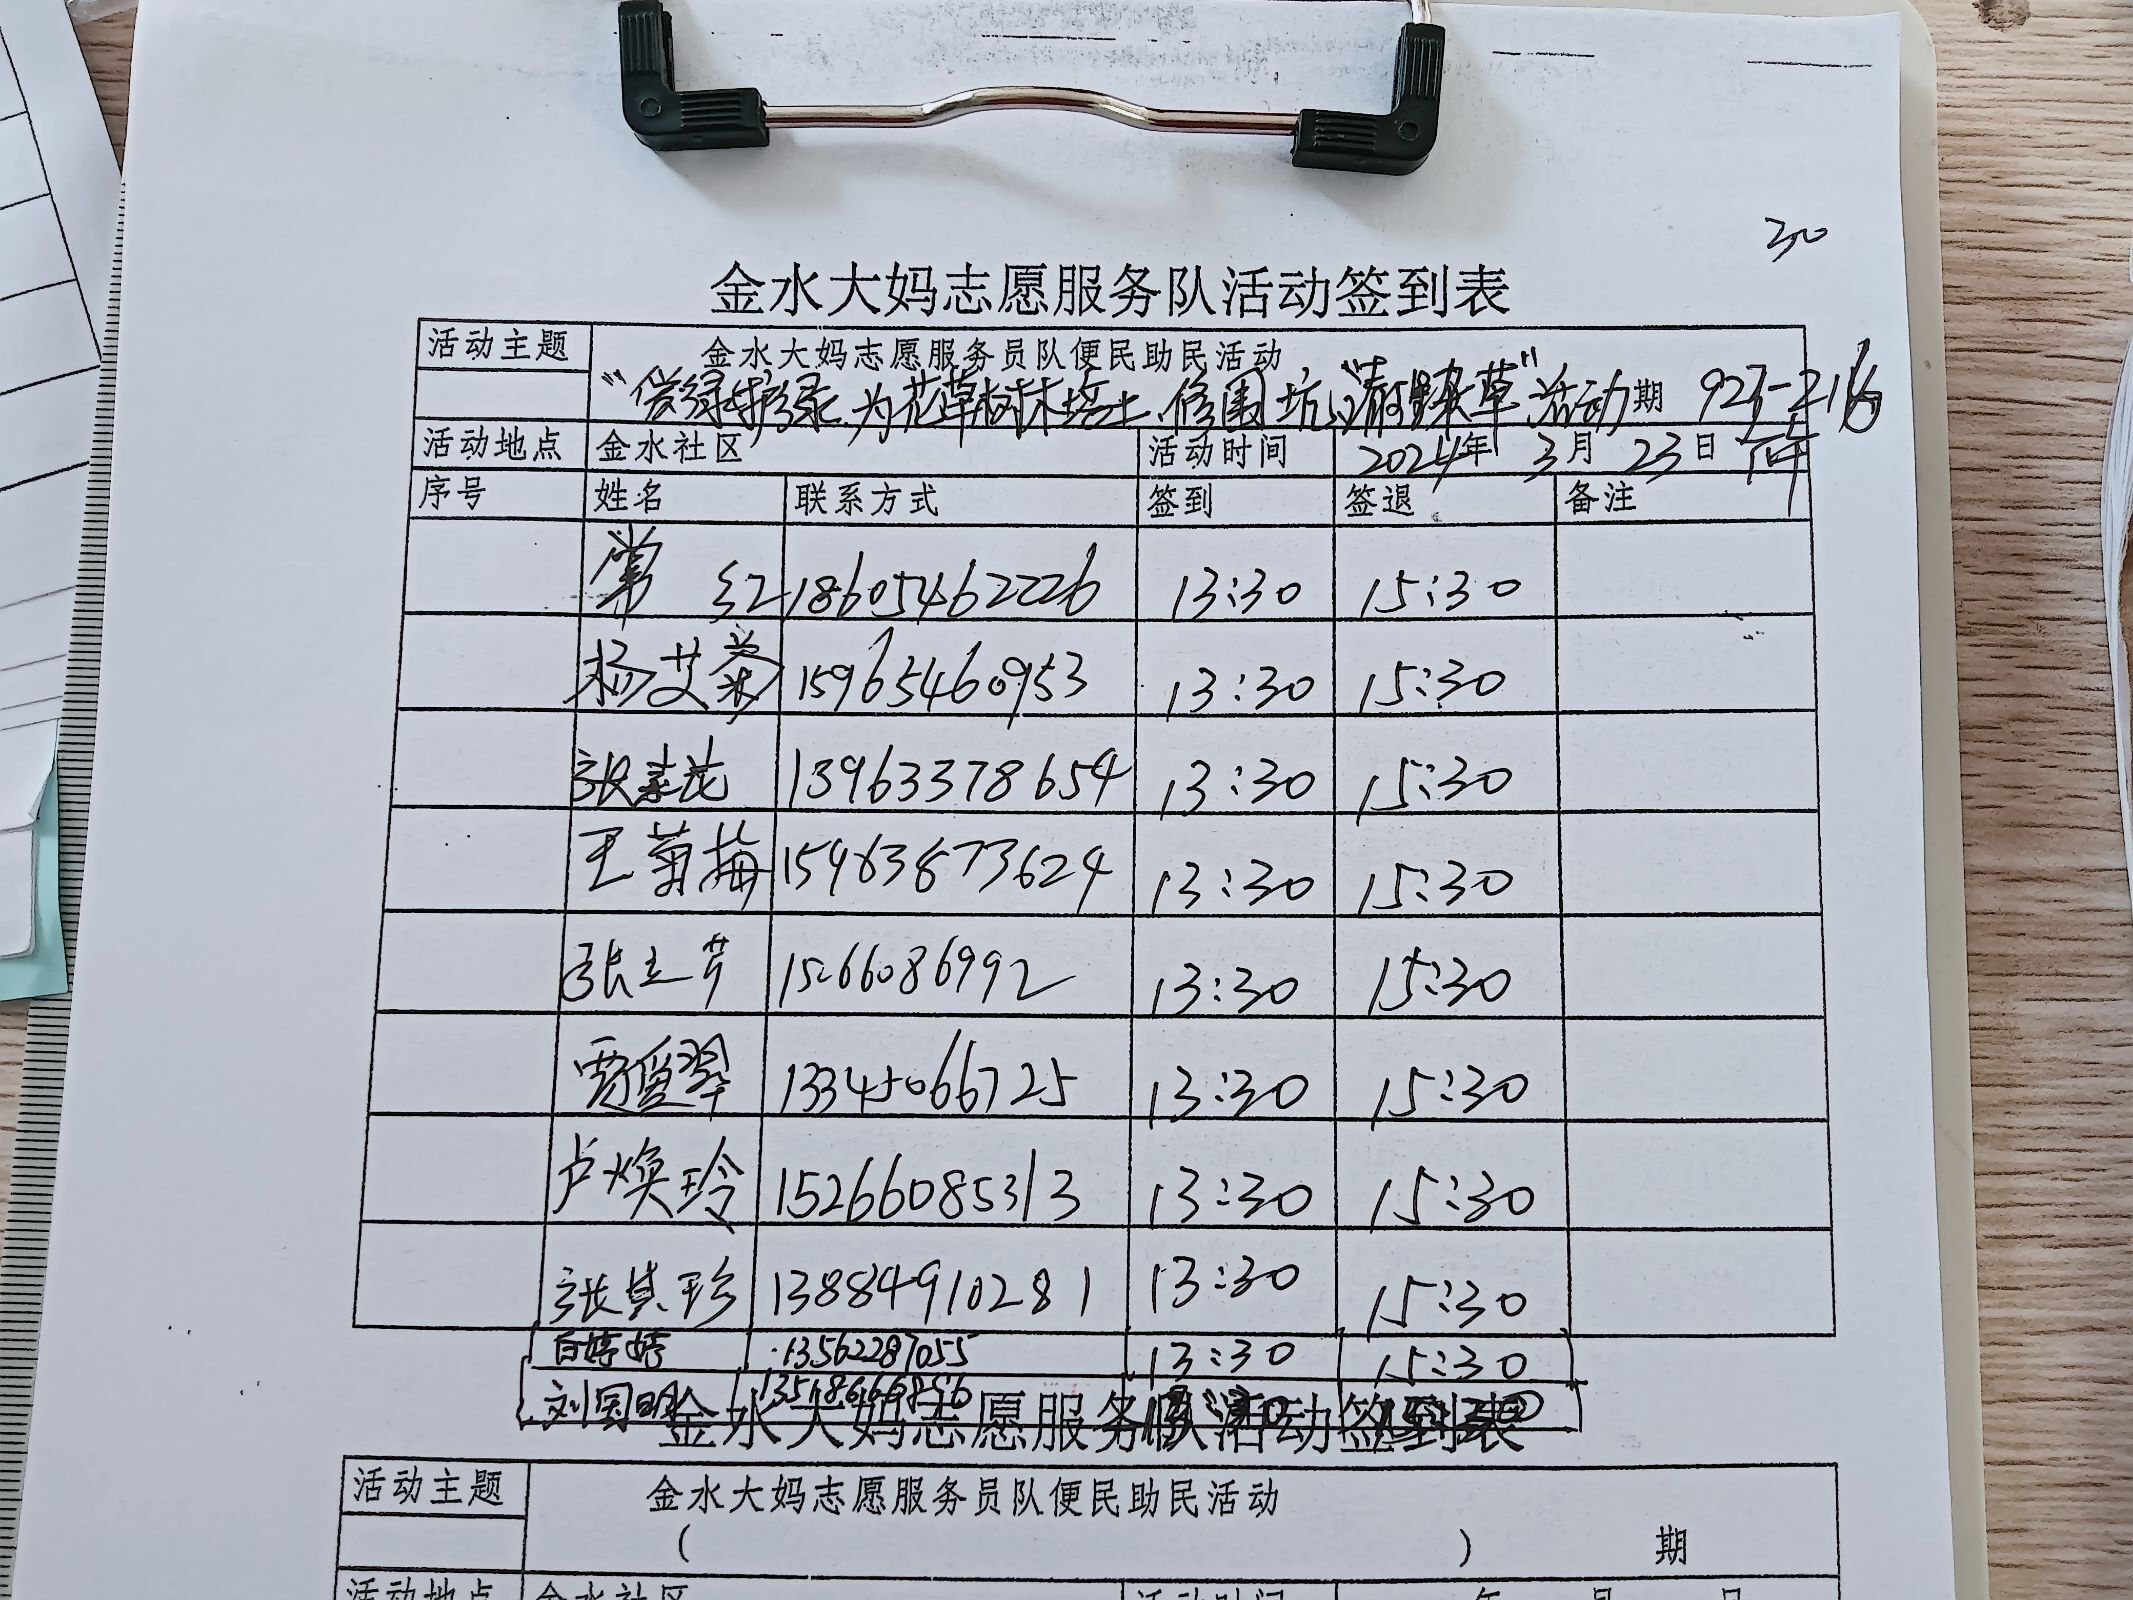 30
金水大妈志愿服务队活动签到表
活动主题 金水大妈志愿服务员队便民助民活动
为花草树木培土、修围坑 活动 期
活动地点 金水社区 活动时间 2024年 3月 23日 下午
序号 姓名 联系方式 签到 签退 备注
常 红 18605462226 13:30 15:30
杨艾荣 15965460953 13:30 15:30
张素花 13963378654 13:30 15:30
王菊梅 15963873624 13:30 15:30
张立芹 15266086992 13:30 15:30
贾俊翠 13345066725 13:30 15:30
卢焕玲 15266085313 13:30 15:30
张其珍 13884910281 13:30 15:30
白婷婷 13562287055 13:30 15:30
刘国明
金水大妈志愿服务队活动签到表
活动主题 金水大妈志愿服务员队便民助民活动
( ) 期
活动地点 金水社区 活动时间 年 月 日